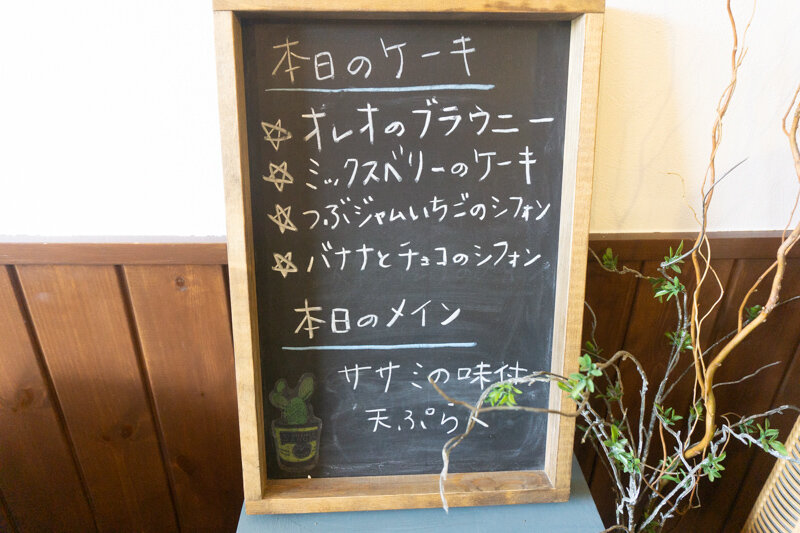 本日のケーキ
☆ オレオのブラウニー
☆ ミックスベリーのケーキ
☆ つぶジャムいちごのシフォン
☆ バナナとチョコのシフォン
本日のメイン
ササミの味付
天ぷら